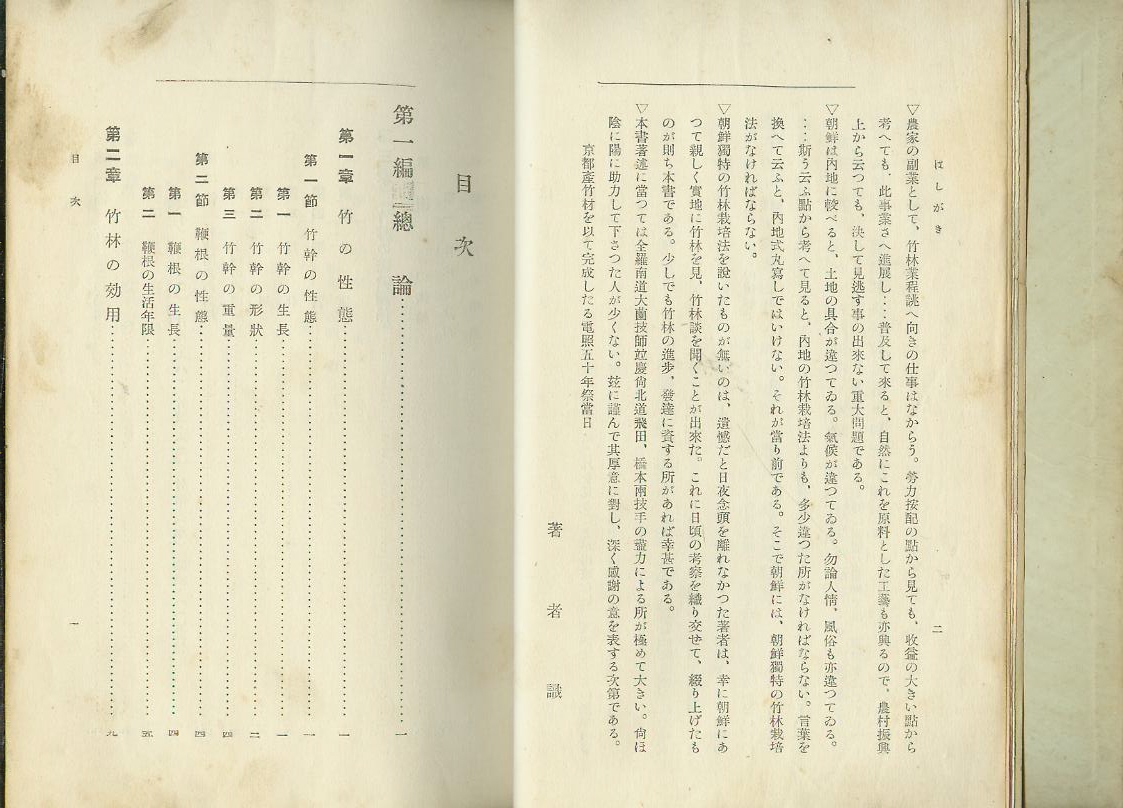 はしがき
二
▽農家の副業として、竹林業程誂へ向きの仕事はなからう。勞力按配の點から見ても、收益の大きい點から
考へても、此事業さへ進展し…普及して來ると、自然にこれを原料とした工藝も亦興るので、農村振興
上から云つても、決して見逃す事の出來ない重大問題である。
▽朝鮮は內地に較べると、土地の具合が違つてゐる。氣候が違つてゐる。勿論人情、風俗も亦違つてゐる。
…斯う云ふ點から考へて見ると、內地の竹林栽培法よりも、多少違つた所がなければならない。言葉を
換へて云ふと、內地式丸寫しではいけない。それが當り前である。そこで朝鮮には、朝鮮獨特の竹林栽培
法がなければならない。
▽朝鮮獨特の竹林栽培法を說いたものが無いのは、遺憾だと日夜念頭を離れなかつた著者は、幸に朝鮮にあ
つて親しく實地に竹林を見、竹林談を聞くことが出來た。これに日頃の考察を織り交せて、綴り上げたも
のが則ち本書である。少しでも竹林の進步、發達に資する所があれば幸甚である。
▽本書著述に當つては全羅南道大薗技師竝慶尙北道飛田、橋本兩技手の盡力による所が極めて大きい。尙ほ
陰に陽に助力して下さつた人が少くない。玆に謹んで其厚意に對し、深く感謝の意を表する次第である。
京都產竹材を以て完成したる電照五十年祭當日
著者識
目次
第一編 總論…一
第一章 竹の性態…一
第一節 竹幹の性態…一
第一 竹幹の生長…一
第二 竹幹の形狀…二
第三 竹幹の重量…四
第二節 鞭根の性態…四
第一 鞭根の生長…四
第二 鞭根の生活年限…五
第二章 竹林の効用…九
目次
一